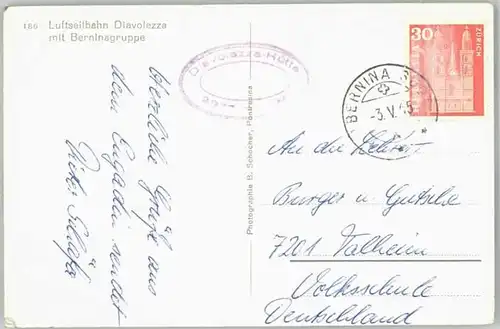 186 Luftseilbahn Diavolezza
mit Berninagruppe
Diavolezza-Hütte
Herzliche Grüße aus
dem Engadin sendet
Photographie B. Schocher, Pontresina
30
ZÜRICH
BERNINA
-3.V.
An die Lehrer
Burger u. Gutsche
7201 Talheim
Volksschule
Deutschland